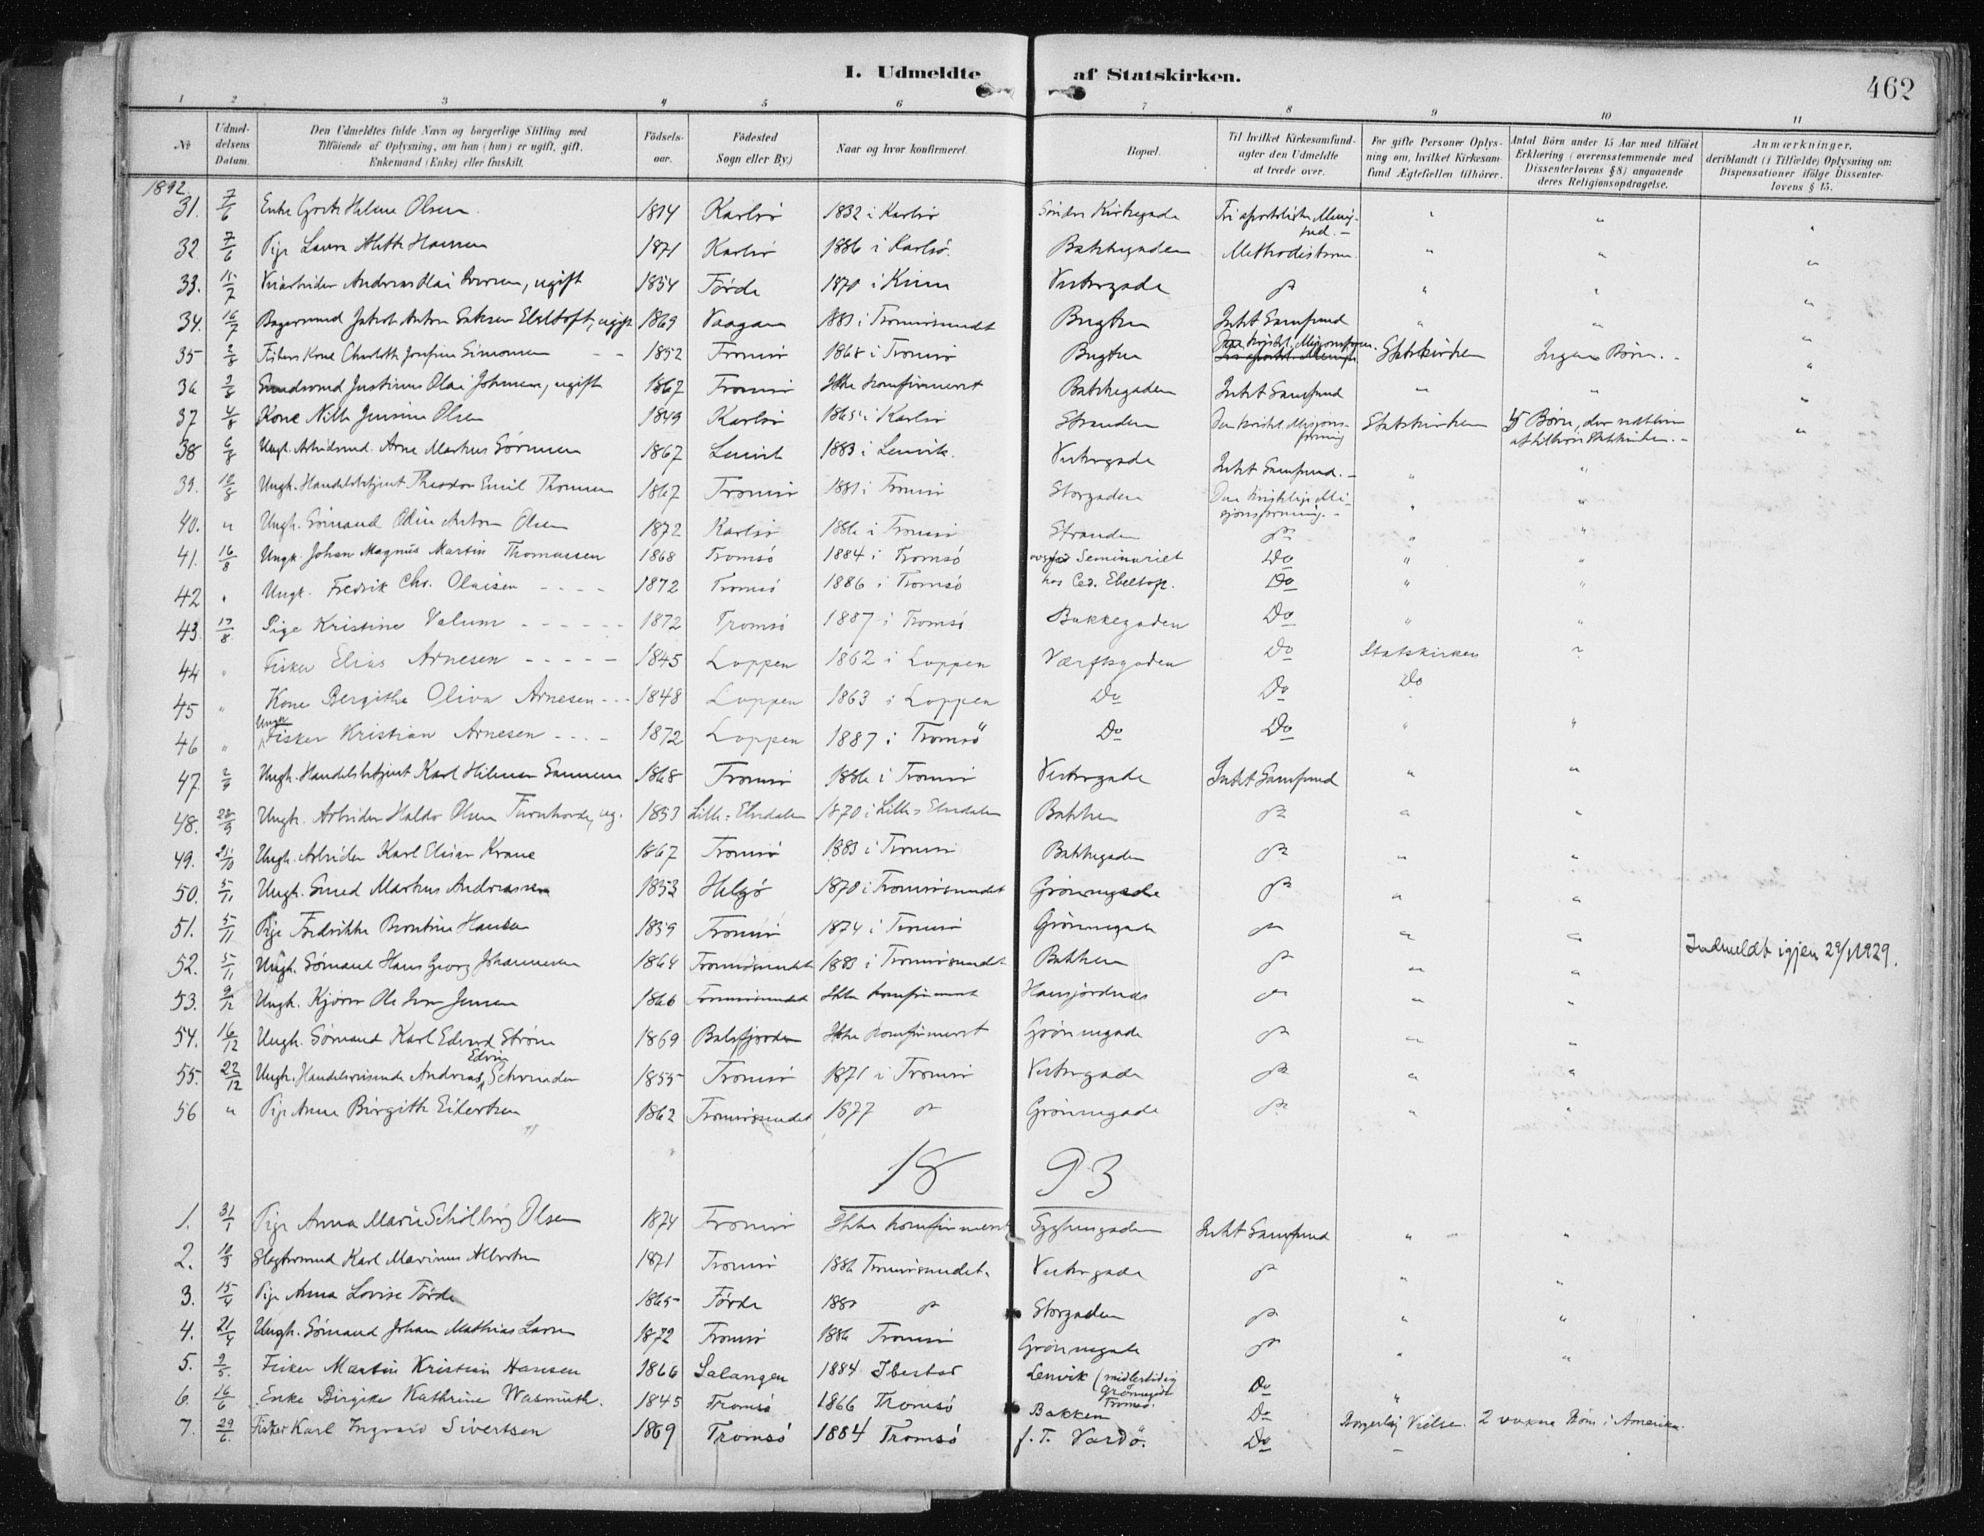 I. Udmeldte af Statskirken.
462
1 2 3 4 5 6 7 8 9 10 11
No | Udmeldelsens Datum. | Den Udmeldtes fulde Navn og borgerlige Stilling med Tilføiende af Oplysning, om han (hun) er ugift, gift, Enkemand (Enke) eller fraskilt. | Fødsels-aar. | Fødested Sogn eller By.) | Naar og hvor konfirmeret. | Bopæl. | Til hvilket Kirkesamfund agter den Udmeldte at træde over. | For gifte Personer Oplysning om, hvilket Kirkesamfund Ægtefællen tilhører. | Antal Børn under 15 Aar med tilføiet Erklæring (overensstemmende med Dissenterlovens §8) angaaende deres Religionsopdragelse. | Anmærkninger, deriblandt (i Tilfælde) Oplysning om Dispensationer ifølge Dissenterlovens § 15.
1892
31. 7/6 Enke Helene Olsen 1814 Karlsö 1832 i Karlsö Söndre Kirkegade Fri apostoliske Menighed. — " " "
32 7/6 Pige Laura Aletta Hansen 1871 Karlsö 1886 i Karlsö. Bakkegaden Methodisterne " " "
33. 15/7 Andreas Olai Iversen, ugift 1854 Förde 1870 i Kinn Vestregade do " " "
34. 16/7 Bagersvend Jakob Anton Ebeltoft, ugift 1869 Vaagan 1883 i Tromsösundet Bugten Intet Samfund " " "
35 2/8 Fiskers Kone Charlotte Josefine Simonsen 1852 Tromsö 1868 i Tromsö Bugten Den kristel. Misjonsforen. Statskirken Ingen Börn. — "
36 2/8 Justinus Olai Johnsen, ugift 1867 Tromsö Ikke konfirmeret Bakkegaden Intet Samfund " " "
37 4/8 Kone Jensine Olsen 1849 Karlsö 1865 i Karlsö Stranden Den kristel. Misjonsforening Statskirken 5 Börn, der vedbliver at tilhöre Statskirken. — "
38 6/8 Ungk. Arbeidsmd. Arne Markus Sörensen 1867 Lenvik 1883 i Lenvik. Vestregade Intet Samfund. — " "
39. 10/8 Ungk. Handelsbetjent Theodor Emil Thomsen 1867 Tromsö 1881 i Tromsö Storgaden Den kristelige Misjonsforening. — " "
40. " Ungk. Sömand Odin Anton Olsen 1872 Karlsö 1886 i Tromsö Stranden do " "
41. 16/8 Ungk. Johan Magnus Martin Thomassen 1868 Tromsö 1884 i Tromsö ovenfor Seminariet Do " "
42 " Ungk. Fredrik Chr. Olaisen - - - - 1872 Tromsö 1886 i Tromsö hos Ced. Ebeltoft. Do " "
43. 17/8 Pige Kristine Valum - - - - - - 1872 Tromsö 1887 i Tromsö Bakkegaden Do " "
44 " Fisker Elias Arnesen - - - - - 1845 Loppen 1862 i Loppen Værftsgaden Do Statskirken ?
45 " Kone Bergithe Oliva Arnesen - - - 1848 Loppen 1863 i Loppen Do Do Do
46 " Ungk. Fisker Kristian Arnesen - - - - 1872 Loppen 1887 i Tromsö Do Do " "
47. 2/9 Ungk. Handelsbetjent Karl Hilmar 1868 Tromsö 1886 i Tromsö Vestregade Intet Samfund " "
48. 28/9 Ungk. Arbeider Haldo Olsen, ug. 1853 Lille-Elvdalen 1870 i Lille-Elvdalen Bakken do " "
49. 21/10 Ungk. Arbeider Karl Elias Krane 1867 Tromsö 1883 i Tromsö Bakkegaden do " "
50. 5/11 Ungk. Smed Markus Andreassen 1853 Helgö 1870 i Tromsösundet Grönnegade do " "
51. 5/11 Pige Fredrikke Hansen 1859 Tromsö 1874 i Tromsö Grönnegade do " "
52. 5/11 Ungk. Sömand Hans Georg Johannesen 1864 Tromsösundet 1883 i Tromsösundet Bakken do " " Indmeldt igjen 29/1 1929.
53. 9/12 Ungk. Kjörer Ole Iver Jensen 1866 Tromsösundet Ikke konfirmeret Hansjordnæs do " "
54. 16/12 Ungk. Sömand Karl Edvard Ström 1869 Balsfjorden Ikke konfirmeret Grönnegade do " "
55. 22/12 Ungk. Handelsreisende Andreas Edvin Schrøder 1855 Tromsö 1871 i Tromsö Vestregade do " "
56 " Pige Anna Birgitte Eilertsen 1862 Tromsösundet 1877 do Grönnegade do " "
18 93
1. 31/1 Pige Anna Marie Olsen 1874 Tromsö Ikke konfirmeret Intet Samfund " "
2. 10/3 Slagtersvend Karl Marinus Albertsen 1871 Tromsö 1886 Tromsösundet. Vestregade do " "
3. 15/4 Pige Anna Lovise Förde 1865 Förde 1881 do Storgaden do " "
4. 21/4 Ungk. Sömand Johan Mathias Larsen 1872 Tromsö 1886 Tromsö Grönnegade do " "
5. 9/5. Fisker Martin Kristian Hansen 1866 Salangen 1884 Ibestad Lenvik (midlertidig Grönnegd. Tromsö. Do
6. 16/6 Enke Birgitte Kathrine Wasmuth. 1845 Tromsö 1866 Tromsö Bakken Do "
7. 29/6. Fisker Karl Ingvald Sivertsen 1869 Tromsö 1884 Tromsö f. T. Vardö. Do Borgerlig Vielse. 2 voxne Börn i Amerika.